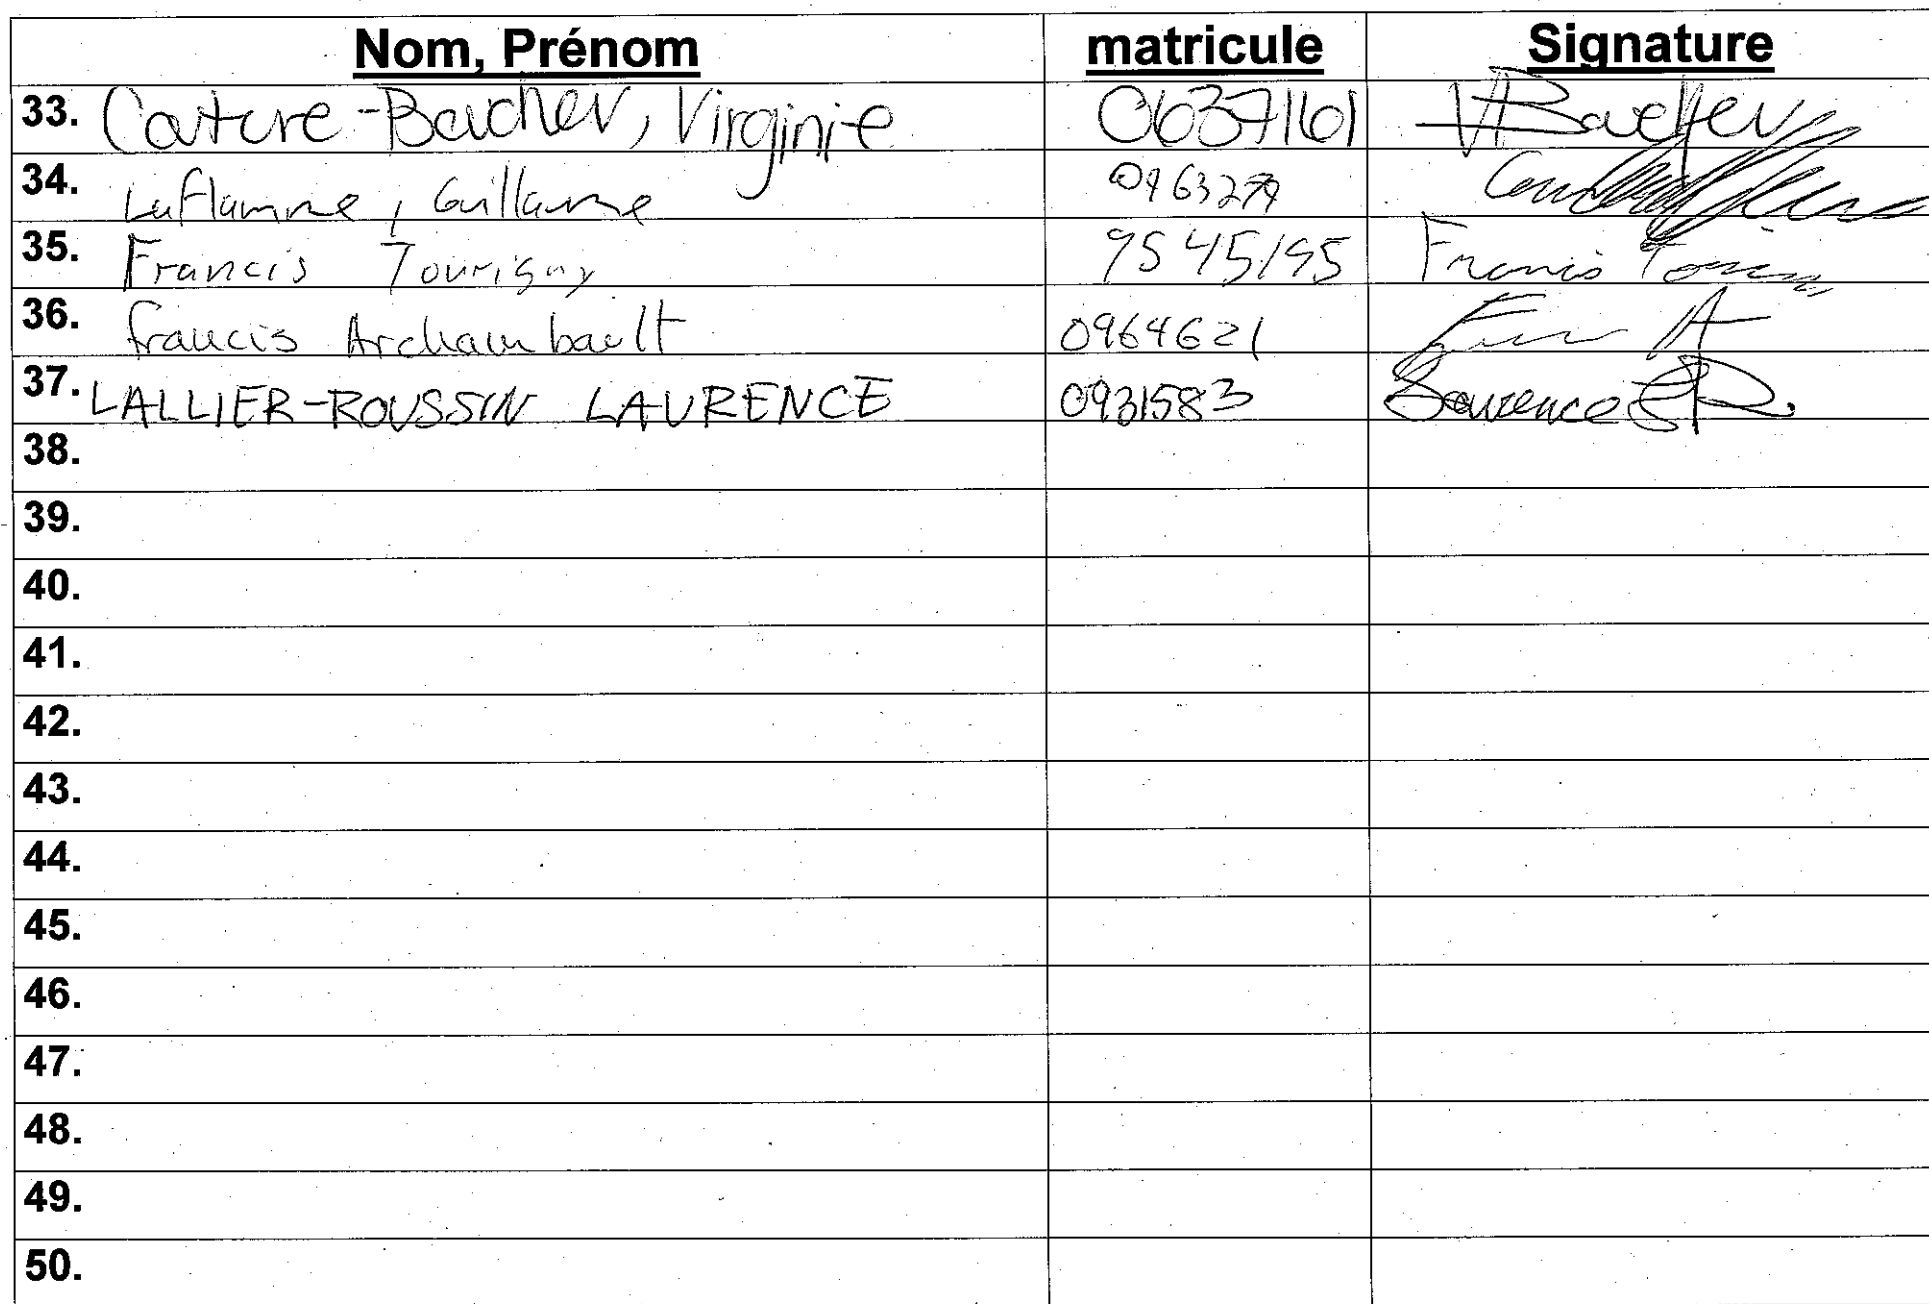 Nom, Prénom matricule Signature
33. Couture-Boucher, Virginie 0637161 VBoucher
34. Laflamme, Guillaume
35. Francis Tourigny 9545195 Francis
36. francis Archambault 0964621
37. LALLIER-ROUSSIN LAURENCE 0931583 Laurence LR
38.
39.
40.
41.
42.
43.
44.
45.
46.
47.
48.
49.
50.